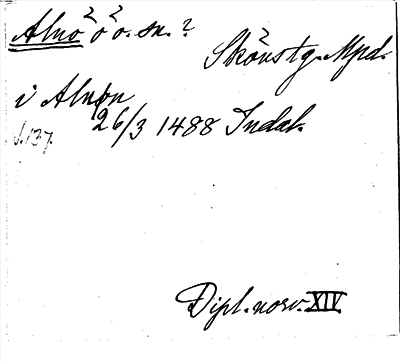 Alnö ö o. sn.?
Skönstg. Mpd.
i Alnøn
26/3 1488 Indal.
s. 137.
Dipl. norv. XIV.